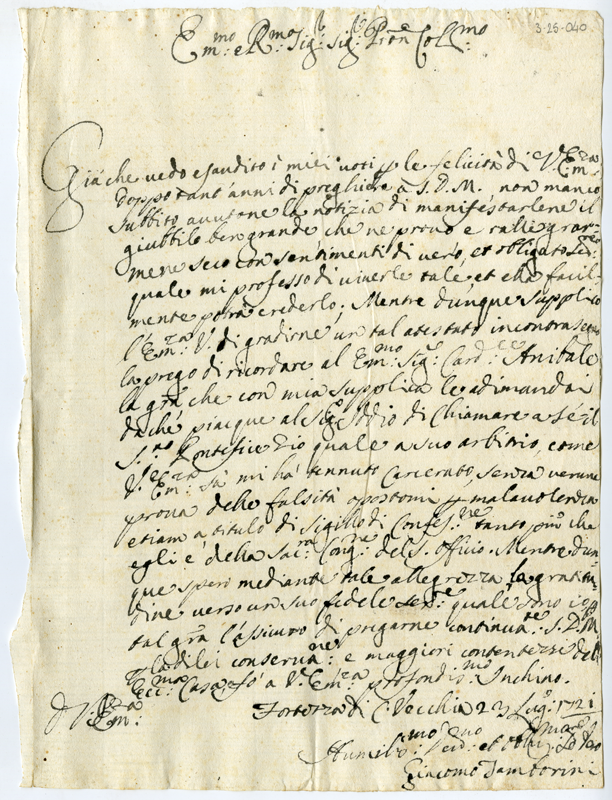 3-25-040
Em:mo e Rmo Sig:r Sig:r Pron Colmo
Già che vedo esaudito i miei voti p le felicità di V. Em:za
doppo tant'anni di preghiere à S.D.M. non manco
subbito avutone la notizia di manifestarlene il
giubbilo ben grande che ne provo e rallegrar-
mene seco con sentimenti di vero, et obligato
quale mi professo di viverle tale et ella facil-
mente potrà crederlo; Mentre dunque supplico
l'Em:za V. di gradirne un tal atestato incontrasegno
la prego di ricordare al Em:mo Sig:r Card:le Anibale
la gra, che con mia supplica le adimandai
dache piacque al Sig:r Iddio di Chiamare a sé il
S.to Pontefice Zio quale a suo arbitrio, come
V. Em:za sà mi hà tennuto Carcerato, senza veruna
prova delle falsità apostomi p malavolenza
etiam à titulo di Sigillo di Confes:ne tanto più che
egli è della Sac:ra Cong:ne del S. Officio. Mentre dun-
que spero mediante tale allegrezza la gratitu-
dine verso un suo fedele ser:re quale sono io
tal gra l'assicuro di pregarne continua:te S.D.M
p la di lei conserva:ne e maggiori contentezze dell
Ecc:ma Casa, e fò a V. Em:za profondis:mo Inchino.
D V. Em:za Fortezza di C. Vecchia 23 Lug:o 1721
Humilis:mo et obli:mo
Giacomo Tamborini